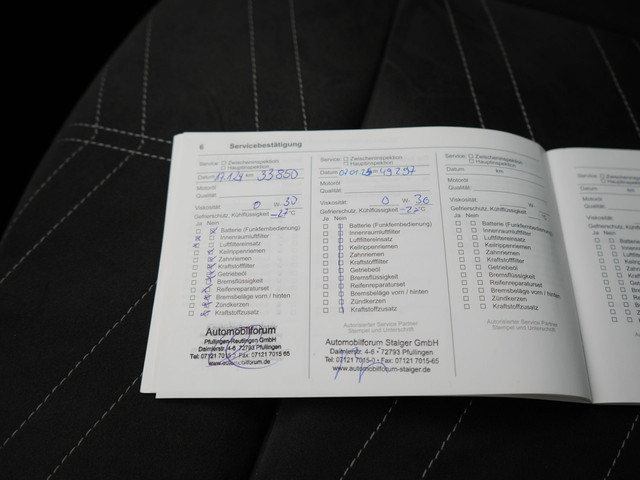 8 Servicebestätigung
Service: Zwischeninspektion
Hauptinspektion
Datum km 33850
Motoröl
Qualität:
Viskosität: 0 W- 30
Gefrierschutz, Kühlflüssigkeit -27°C
Ja Nein
Batterie (Funkfernbedienung)
Innenraumluftfilter
Luftfiltereinsatz
Keilrippenriemen
Zahnriemen
Kraftstofffilter
Getriebeöl
Bremsflüssigkeit
Reifenreparaturset
Bremsbeläge vorn / hinten
Zündkerzen
Kraftstoffzusatz
Automobilforum
Pfullingen Reutlingen GmbH
Daimlerstr. 4-6 72793 Pfullingen
Tel: 07121 7015-0 Fax: 07121 7015 65
www.automobilforum.de
Service: Zwischeninspektion
Hauptinspektion
Datum km 49297
Motoröl
Qualität:
Viskosität: 0 W- 30
Gefrierschutz, Kühlflüssigkeit -27°C
Ja Nein
Batterie (Funkfernbedienung)
Innenraumluftfilter
Luftfiltereinsatz
Keilrippenriemen
Zahnriemen
Kraftstofffilter
Getriebeöl
Bremsflüssigkeit
Reifenreparaturset
Bremsbeläge vorn / hinten
Zündkerzen
Kraftstoffzusatz
Autorisierter Service Partner
Stempel und Unterschrift
Automobilforum Staiger GmbH
Daimlerstr. 4-6 • 72793 Pfullingen
Tel: 07121 7015-0 • Fax: 07121 7015-65
www.automobilforum-staiger.de
Service: Zwischeninspektion
Hauptinspektion
Datum: km
Motoröl
Qualität:
Viskosität: W-
Gefrierschutz, Kühlflüssigkeit °C
Ja Nein
Batterie (Funkfernbedienung)
Innenraumluftfilter
Luftfiltereinsatz
Keilrippenriemen
Zahnriemen
Kraftstofffilter
Getriebeöl
Bremsflüssigkeit
Reifenreparaturset
Bremsbeläge vorn / hinten
Zündkerzen
Kraftstoffzusatz
Autorisierter Service Partner
Stempel und Unterschrift
Service:
Datum:
Motoröl
Qualität:
Viskosität:
Gefrierschutz,
Ja Nein